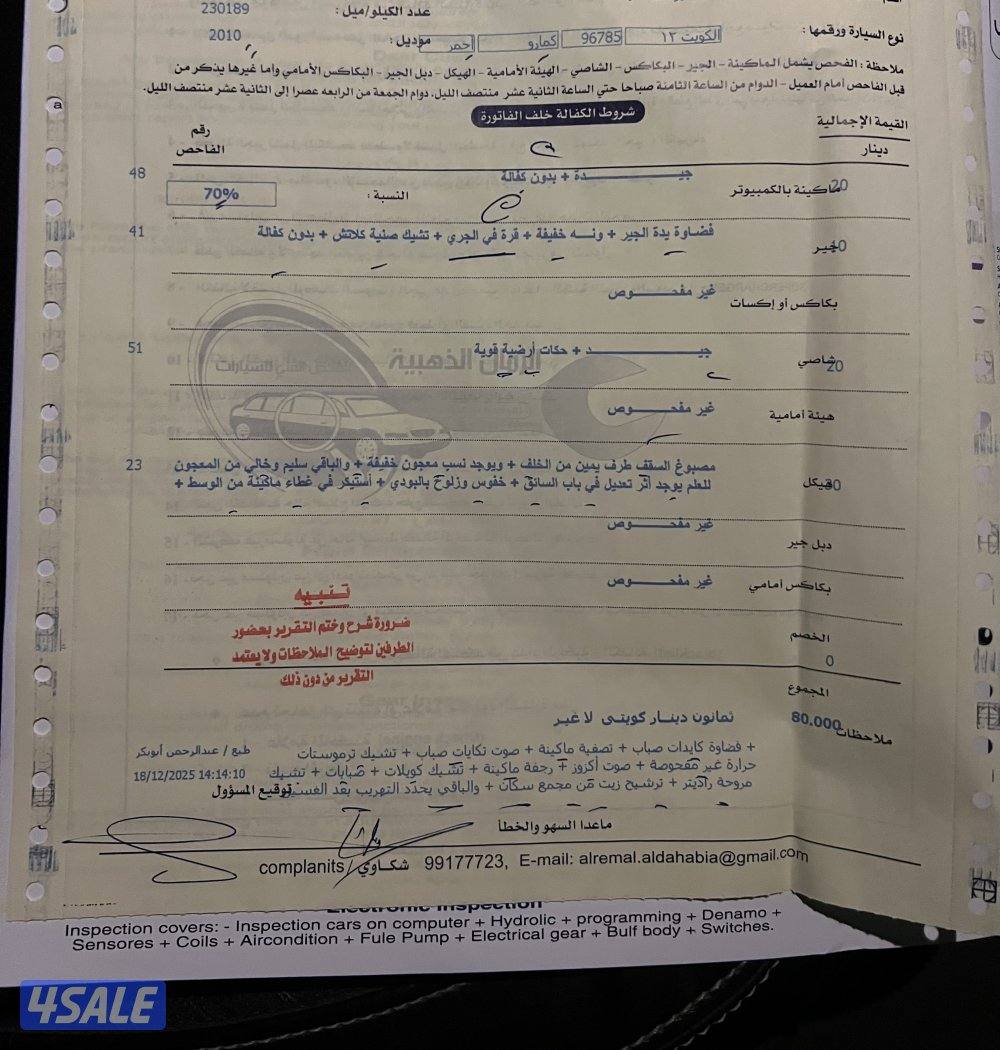 عدد الكيلو/ميل : 230189
نوع السيارة ورقمها : الكويت ١٢ 96785 كمارو أحمر موديل : 2010
ملاحظة : الفحص يشمل الماكينة - الجير - البكاكس - الشاصي - الهيئة الأمامية - الهيكل - دبل الجير - البكاكس الأمامي وأما غيرها يذكر من
قبل الفاحص أمام العميل - الدوام من الساعة الثامنة صباحا حتي الساعة الثانية عشر منتصف الليل. دوام الجمعة من الرابعه عصرا إلى الثانية عشر منتصف الليل.
شروط الكفالة خلف الفاتورة
القيمة الإجمالية
دينار
رقم
الفاحص
20 ماكينة بالكمبيوتر جيـــــدة + بدون كفالة 48
النسبة : 70%
جير فضاوة يدة الجير + ونـــه خفيفة + قرة في الجري + تشيك صنية كلاتش + بدون كفالة 41
بكاكس أو إكسات غير مفحـــــوص
20 شاصي جيـــــد + حكات أرضية قوية 51
الأمان الذهبية
هيئة أمامية غير مفحـــــوص
هيكل مصبوغ السقف طرف يمين من الخلف + ويوجد نسب معجون خفيفة + والباقي سليم وخالي من المعجون 23
للعلم يوجد أثر تعديل في باب السائق + خفوس وزلوخ بالبودي + أستيكر في غطاء ماكينة من الوسط +
دبل جير غير مفحـــــوص
بكاكس أمامي غير مفحـــــوص
تنبيه
ضرورة شرح وختم التقرير بحضور
الطرفين لتوضيح الملاحظات ولا يعتمد
التقرير من دون ذلك
الخصم
0
المجموع
80.000 ثمانون دينار كويتي لا غير
ملاحظات
+ فضاوة كايدات صباب + تصفية ماكينة + صوت تكايات صباب + تشيك ترموستات
حرارة غير مفحوصة + صوت أكزوز + رجفة ماكينة + تشيك كويلات + صبابات + تشيك
مروحة راديتر + ترشيح زيت من مجمع سكان + والباقي يحدد التهريب بعد الغسيل
طبع / عبدالرحمن أبوبكر
18/12/2025 14:14:10
توقيع المسؤول
ماعدا السهو والخطأ
complanits/ شكاوي 99177723, E-mail: alremal.aldahabia@gmail.com
Electronic Inspection
Inspection covers: - Inspection cars on computer + Hydrolic + programming + Denamo +
Sensores + Coils + Aircondition + Fule Pump + Electrical gear + Bulf body + Switches.
4SALE